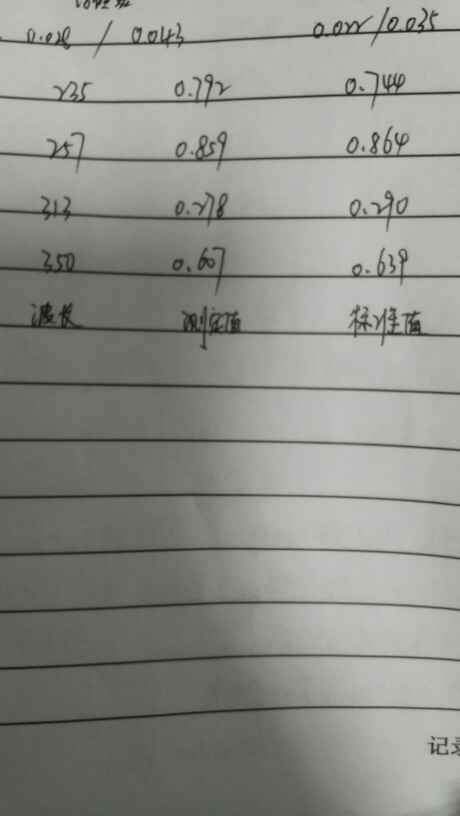 0.028 / 0.043 0.022/0.035
235 0.792 0.744
257 0.859 0.864
313 0.278 0.290
350 0.607 0.639
波长 测定值 标准值
记录